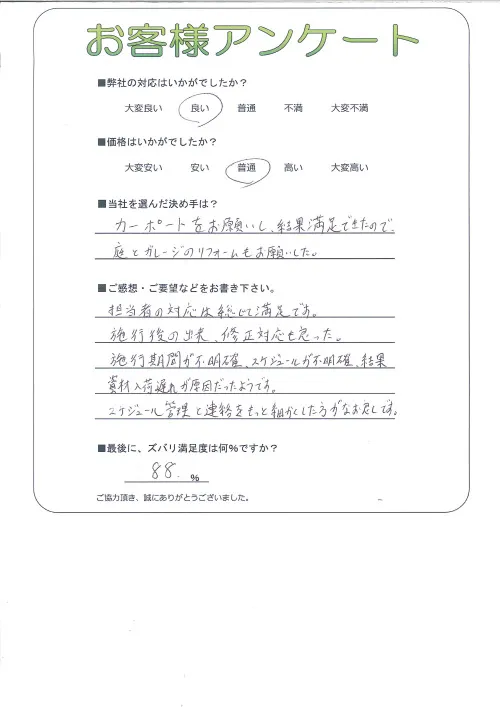 お客様アンケート
■弊社の対応はいかがでしたか？
大変良い 良い 普通 不満 大変不満
■価格はいかがでしたか？
大変安い 安い 普通 高い 大変高い
■当社を選んだ決め手は？
カーポートをお願いし、結果満足できたので、
庭とガレージのリフォームもお願いした。
■ご感想・ご要望などをお書き下さい。
担当者の対応は総じて満足です。
施行後の出来、修正対応も良った。
施行期間が不明確、スケジュールが不明確、結果
資材入荷遅れが原因だったようです。
スケジュール管理と連絡をもっと細かくした方がなお良しです。
■最後に、ズバリ満足度は何%ですか？
88. %
ご協力頂き、誠にありがとうございました。